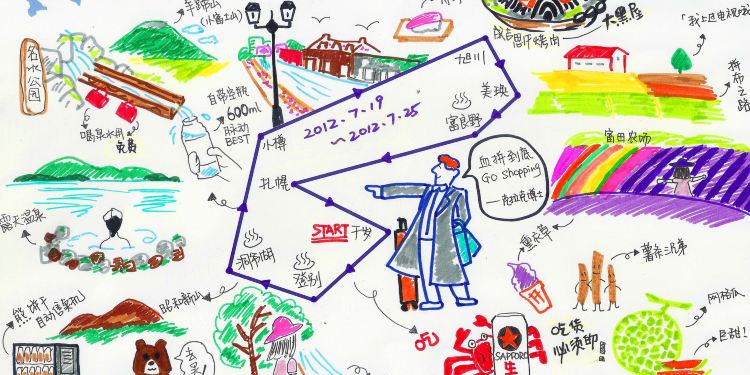 (小富士山)
名水公园
喝泉水用
免费
自带空瓶
600ml
脉动
BEST
小樽
2012.7.19
~2012.7.25
旭川
美瑛
富良野
札幌
START
千岁
洞爷湖
登别
大黑屋
拼布之路
富田农场
血拼到底
GO shopping
—克拉克博士
露天温泉
熊饼干
自动售卖机
昭和新山
去吴
薰衣草
薯条三兄弟
吃
SAPPORO
生
吃货
必须即
网格瓜
巨甜!